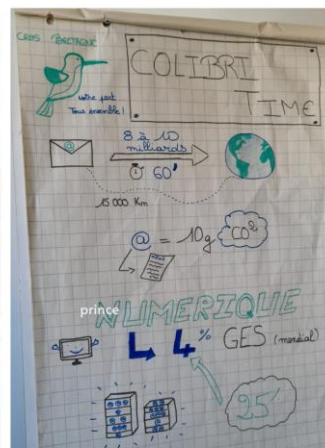 CROS BRETAGNE
COLIBRI
TIME
votre part
Tous ensemble !
@
8 à 10
milliards
60'
15 000 Km
@ = 10g CO²
prince
NUMERIQUE
4% GES (mondial)
25'